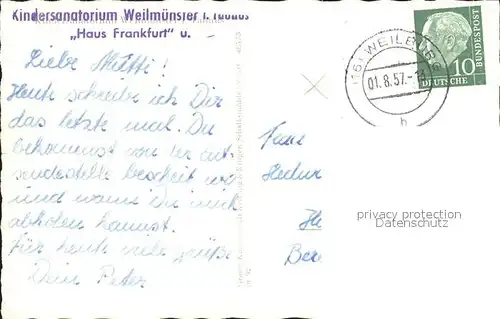 Kindersanatorium Weilmünster i. Taunus
„Haus Frankfurt" u.
Liebe Mutti!
Heute schreibe ich Dir
das letzte mal. Du
bekommst von der
bescheit wo
und wann Du mich
abholen kannst.
Für heute viele grüße
Dein Peter
(16) WEILBURG
01.8.57.-
h
10
DEUTSCHE
BUNDESPOST
Frau
privacy protection
Datenschutz